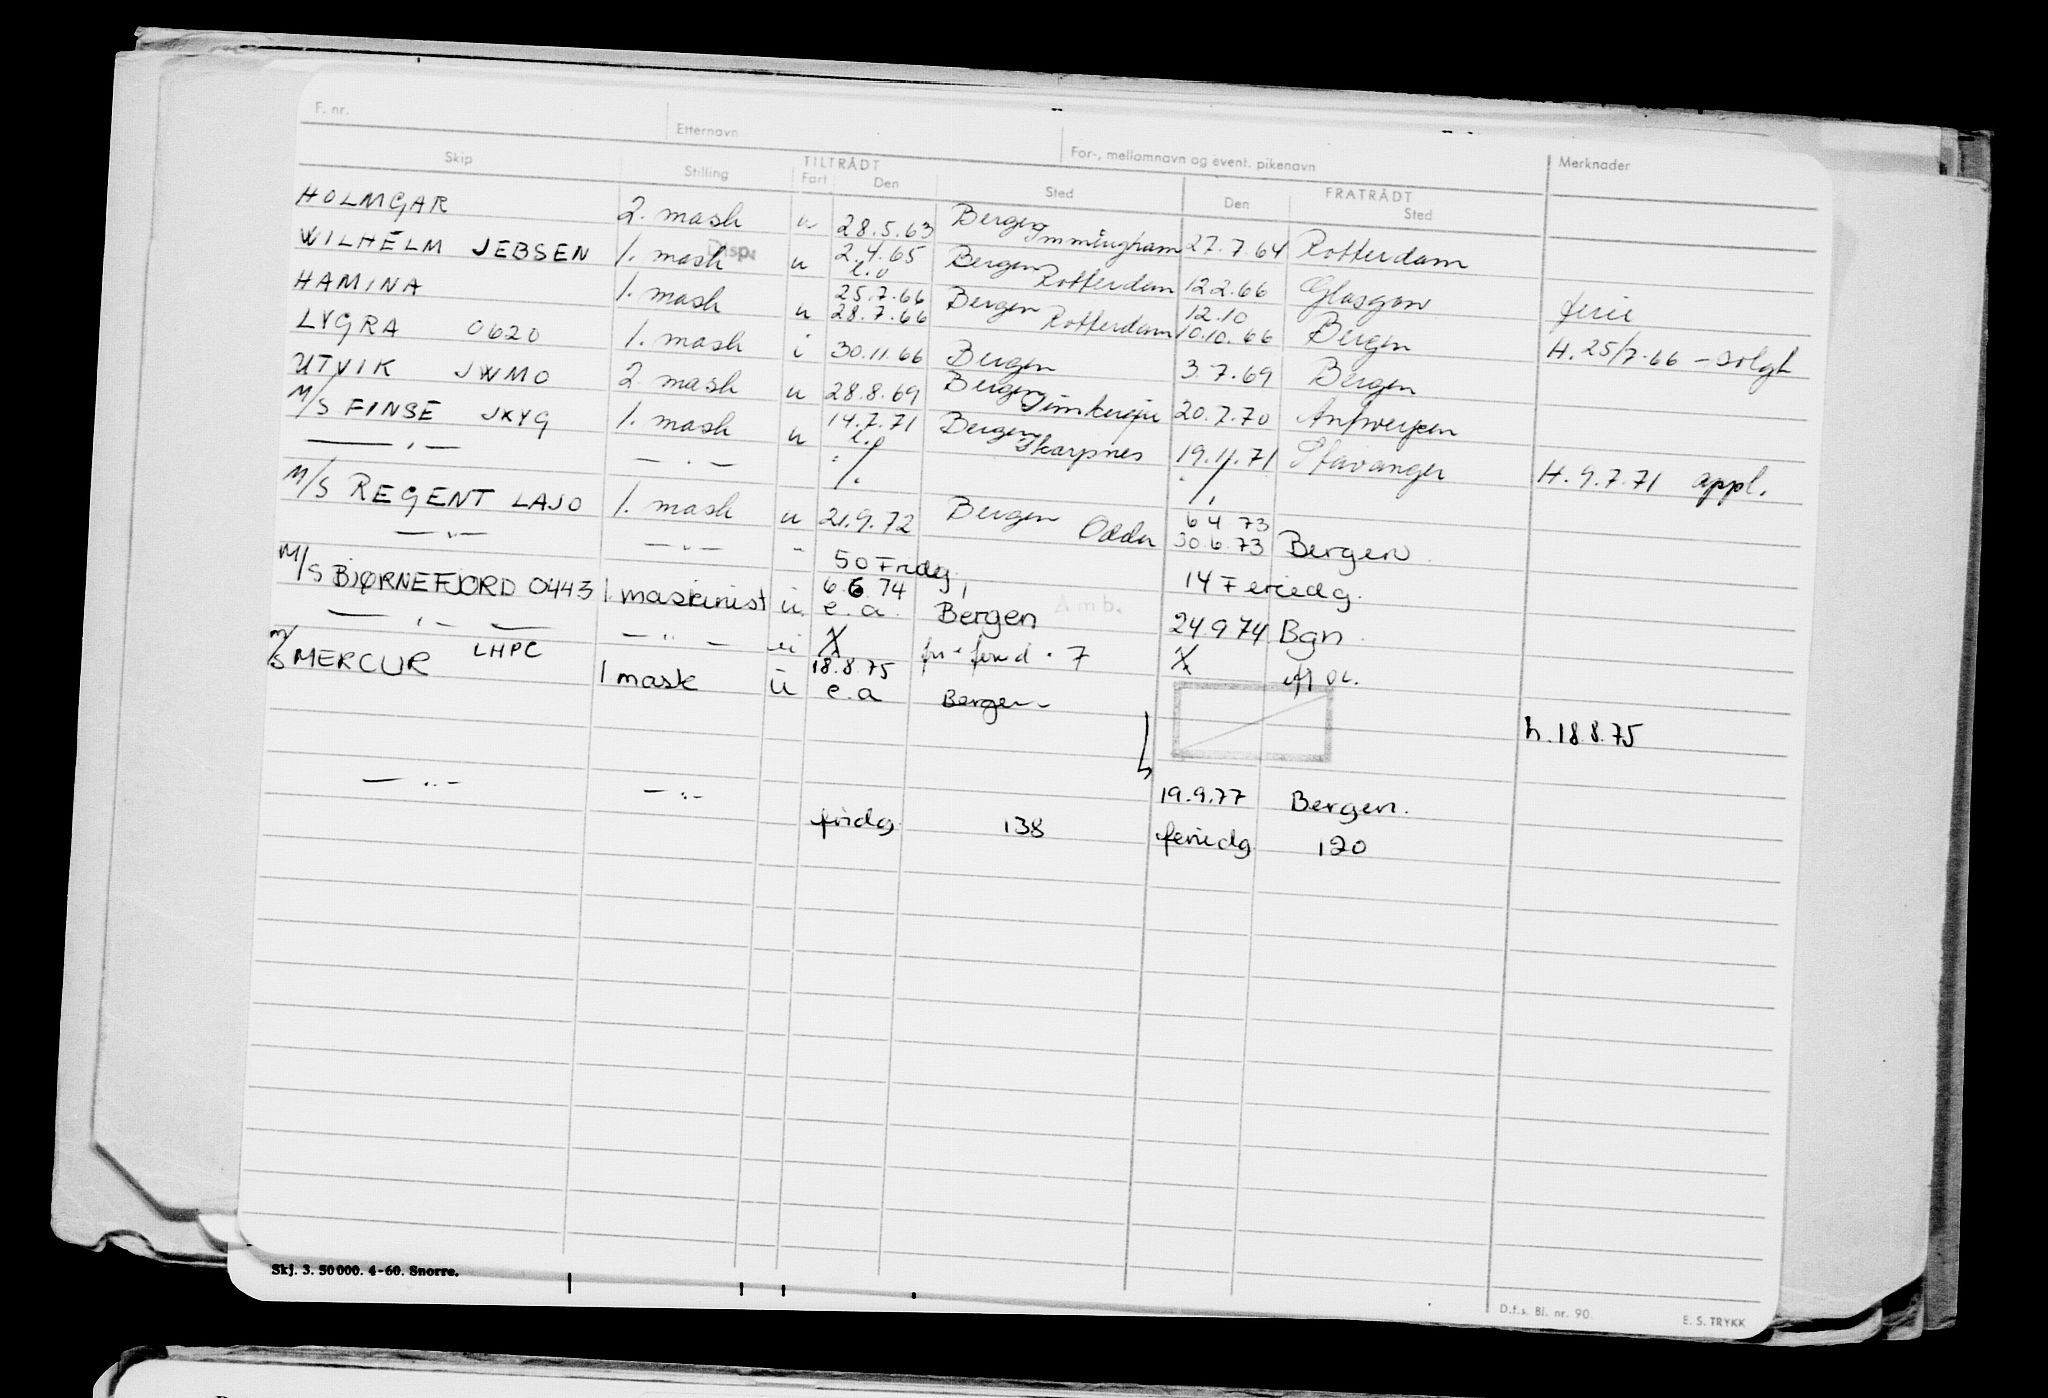 F. nr. Etternavn For-, mellomnavn og event. pikenavn Merknader
Skip Stilling TILTRÅDT Fart Den Sted FRATRÅDT Den Sted
HOLMGAR 2. mask u 28.5.63 Bergen Immingham 27.7.64 Rotterdam
Disp.
WILHELM JEBSEN 1. mask u 2.4.65 Bergen Rotterdam 12.2.66 Glasgow ferie
HAMINA 1. mask u 25.7.66 28.7.66 Bergen Rotterdam 12.10 10.10.66 Bergen H. 25/7-66 - solgt
LYGRA 0620 1. mask i 30.11.66 Bergen 3.7.69 Bergen
UTVIK JWMO 2. mask u 28.8.69 Bergen 20.7.70 Antwerpen
M/S FINSE JKYG 1. mask u 14.7.71 Bergen Skarpnes 19.11.71 Stavanger H. 9.7.71 appl.
— " — — " —
M/S REGENT LAJO 1. mask u 21.9.72 Bergen Odda 6 4 73 30.6.73 Bergen
— " — — " — " 50 Fridg. 14 Feriedg.
M/S BJØRNEFJORD 0443 1 maskinist u 6.6 74 e.a. Bergen Amb. 24.9 74 Bgn.
— " — — " —
M/S MERCUR LHPC 1 mask u 18.8.75 e.a Bergen h. 18.8.75
— " — — " — 19.9.77 Bergen.
fridg 138 feriedg 120
Skj. 3. 50 000. 4-60. Snorre.
D.f.s. Bl. nr. 90. E. S. TRYKK